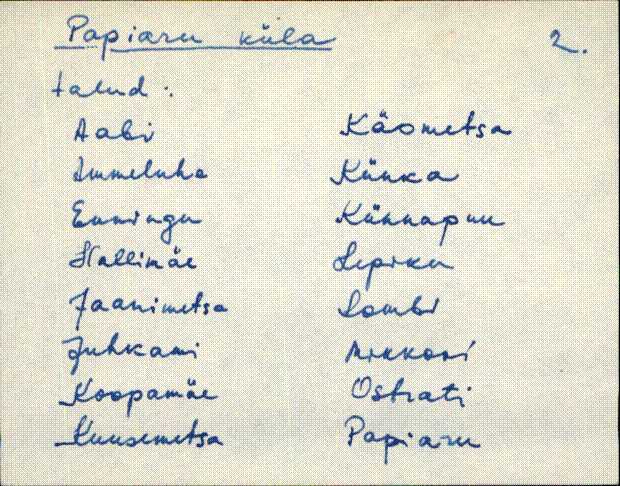 Papiaru küla 2.
talud:
Aabi
Ammeluha
Enningu
Hallimäe
Jaanimetsa
Juhkami
Koopamäe
Kuusemetsa
Käometsa
Künka
Künnapuu
Lepiku
Lombi
Mikkori
Ostrati
Papiaru